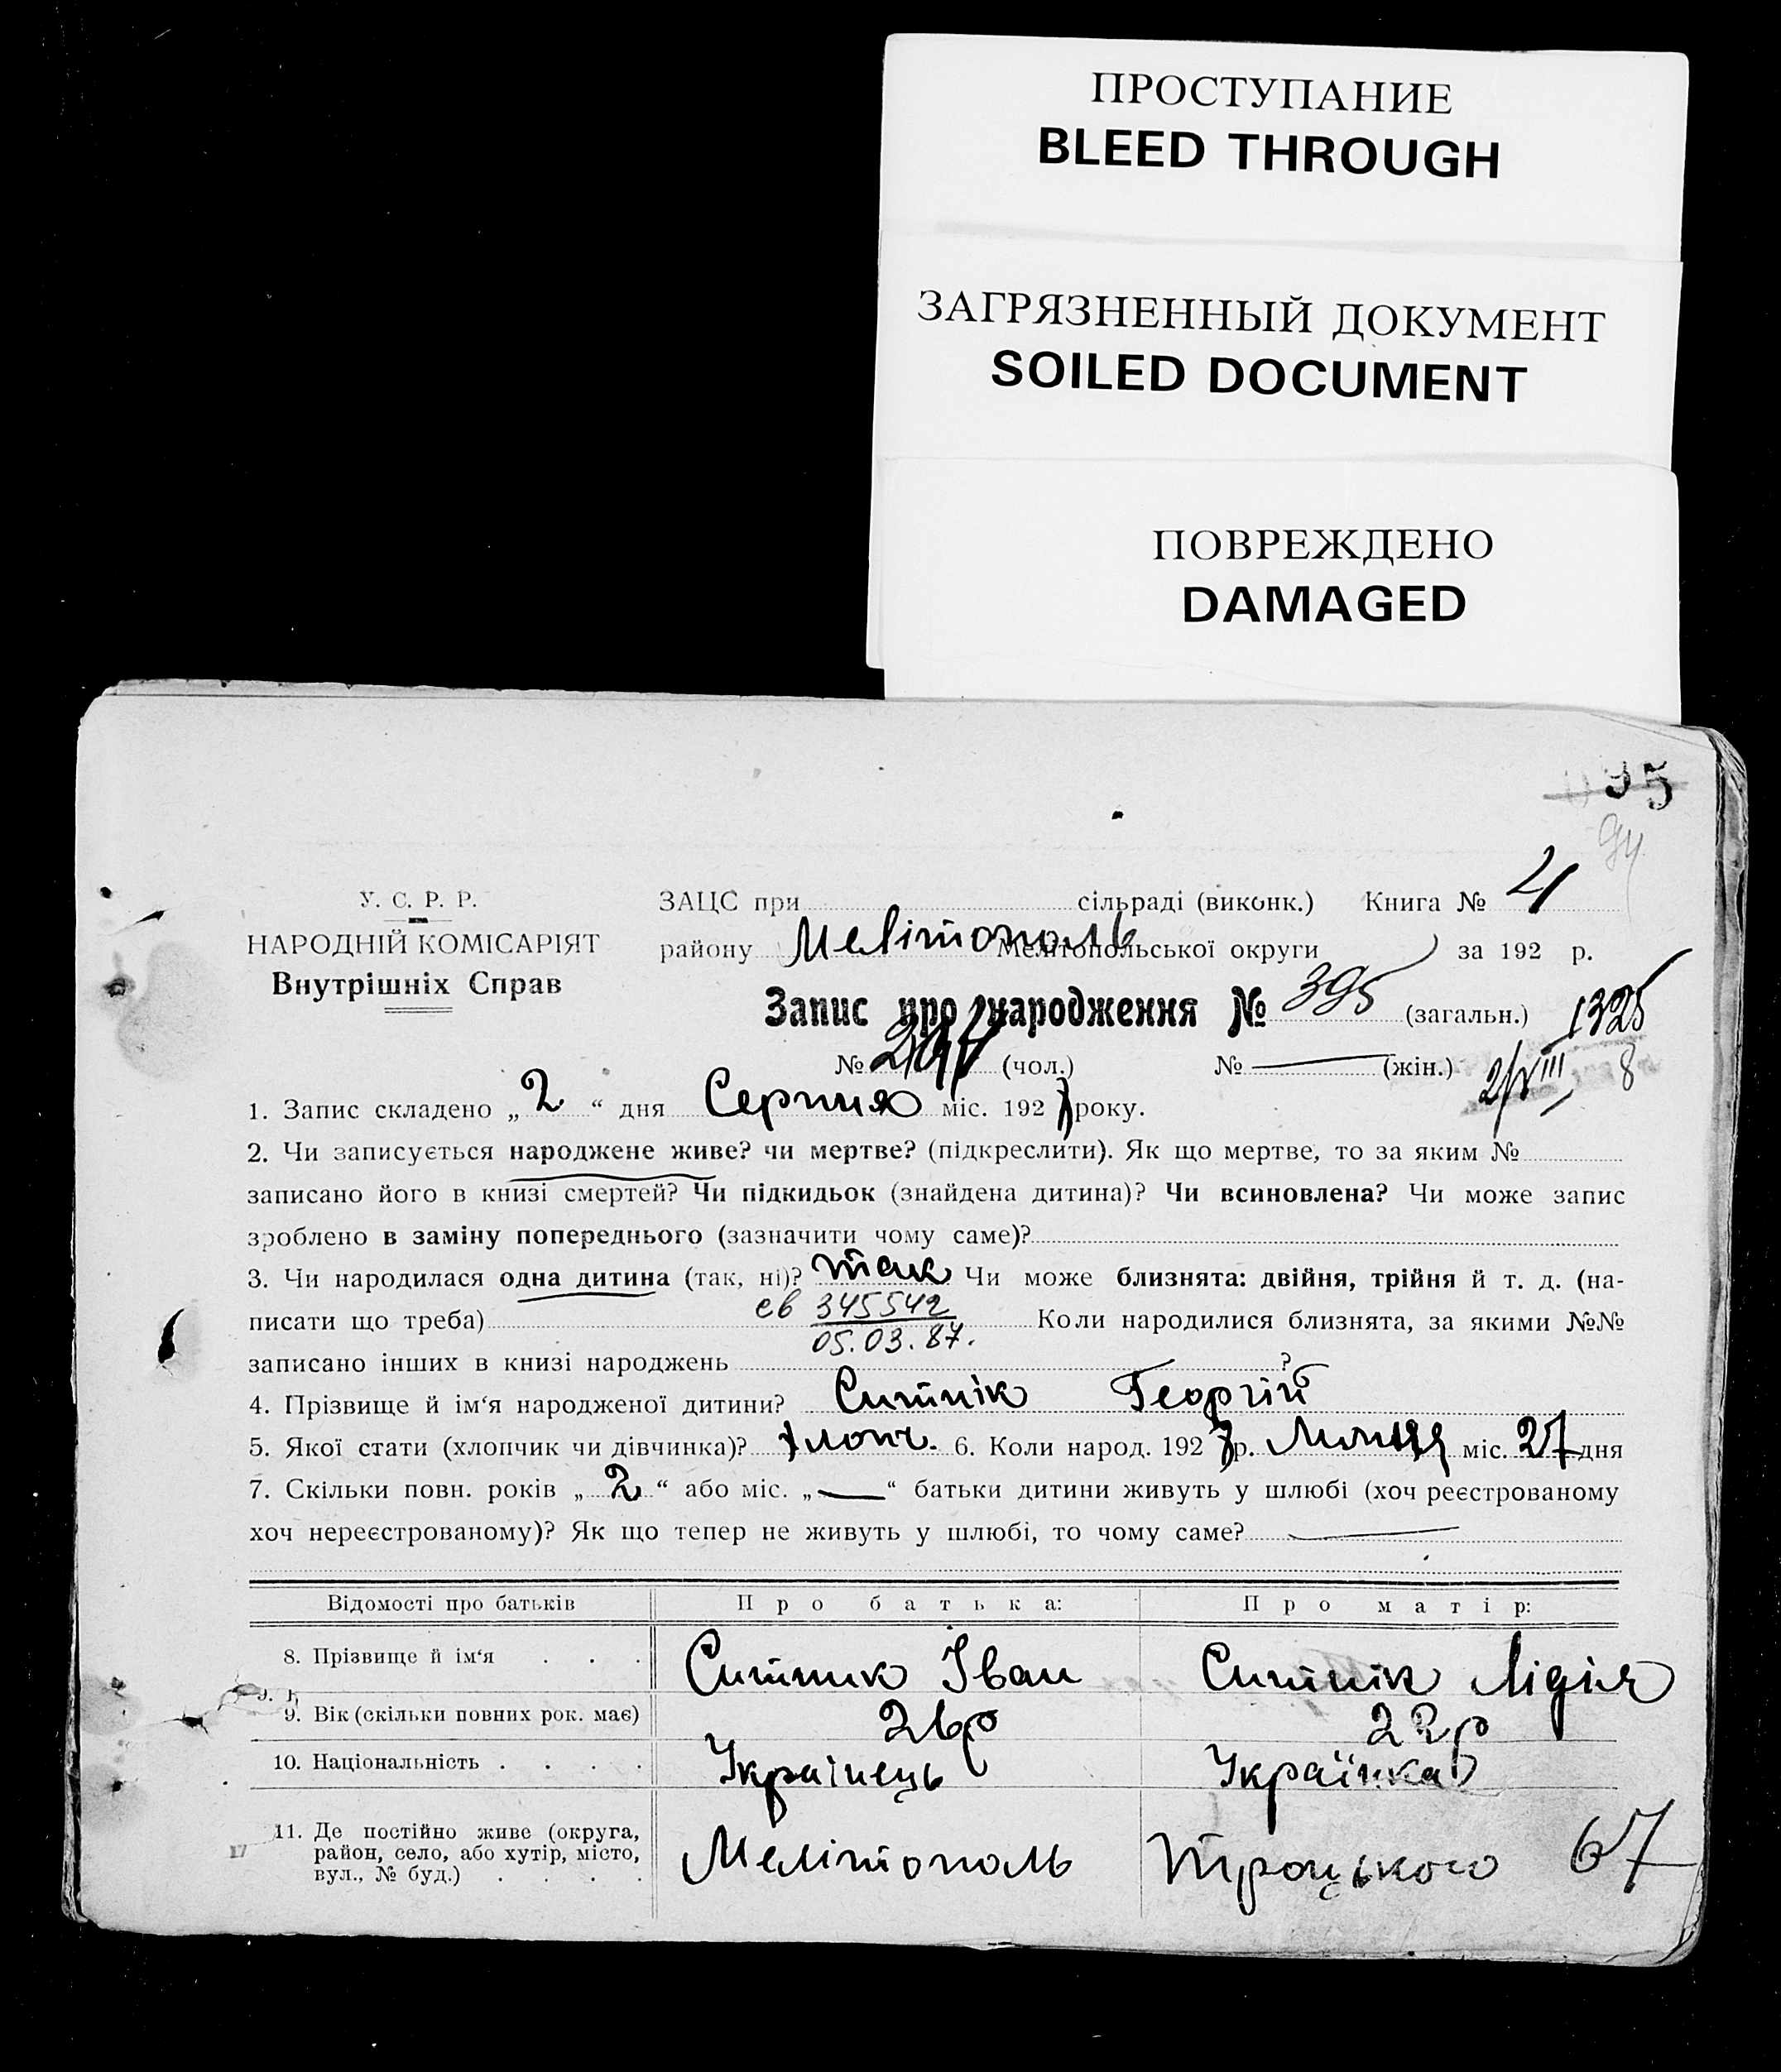 ПРОСТУПАНИЕ
BLEED THROUGH
ЗАГРЯЗНЕННЫЙ ДОКУМЕНТ
SOILED DOCUMENT
ПОВРЕЖДЕНО
DAMAGED
95
94
У. С. Р. Р.
НАРОДНІЙ КОМІСАРІЯТ
Внутрішніх Справ
ЗАЦС при сільраді (виконк.) Книга № 4
району Мелітополь Мелітопольської округи за 192 р.
Запис про народження № 395 (загальн.) 1325
№ (чол.) № — (жін.) 2/VIII 8
1. Запис складено „2“ дня Серпня міс. 1927 року.
2. Чи записується народжене живе? чи мертве? (підкреслити). Як що мертве, то за яким №
записано його в книзі смертей? Чи підкидьок (знайдена дитина)? Чи всиновлена? Чи може запис
зроблено в заміну попереднього (зазначити чому саме)?
3. Чи народилася одна дитина (так, ні)? так Чи може близнята: двійня, трійня й т. д. (на-
писати що треба) св 345542 Коли народилися близнята, за якими №№
05.03.87.
записано інших в книзі народжень ?
4. Прізвище й ім‘я народженої дитини? Ситнік Георгій
5. Якої стати (хлопчик чи дівчинка)? хлопч. 6. Коли народ. 1927 р. Липця міс. 27 дня
7. Скільки повн. років „2“ або міс. „—“ батьки дитини живуть у шлюбі (хоч реєстрованому
хоч нереєстрованому)? Як що тепер не живуть у шлюбі, то чому саме? —
Відомості про батьків Про батька: Про матір:
8. Прізвище й ім‘я . . . Ситник Іван Ситнік Лідія
9. Вік (скільки повних рок. має) 26р 22р
10. Національність . . . . Українець Українка
11. Де постійно живе (округа,
район, село, або хутір, місто,
вул., № буд.) . . . . Мелітополь Троцького 67